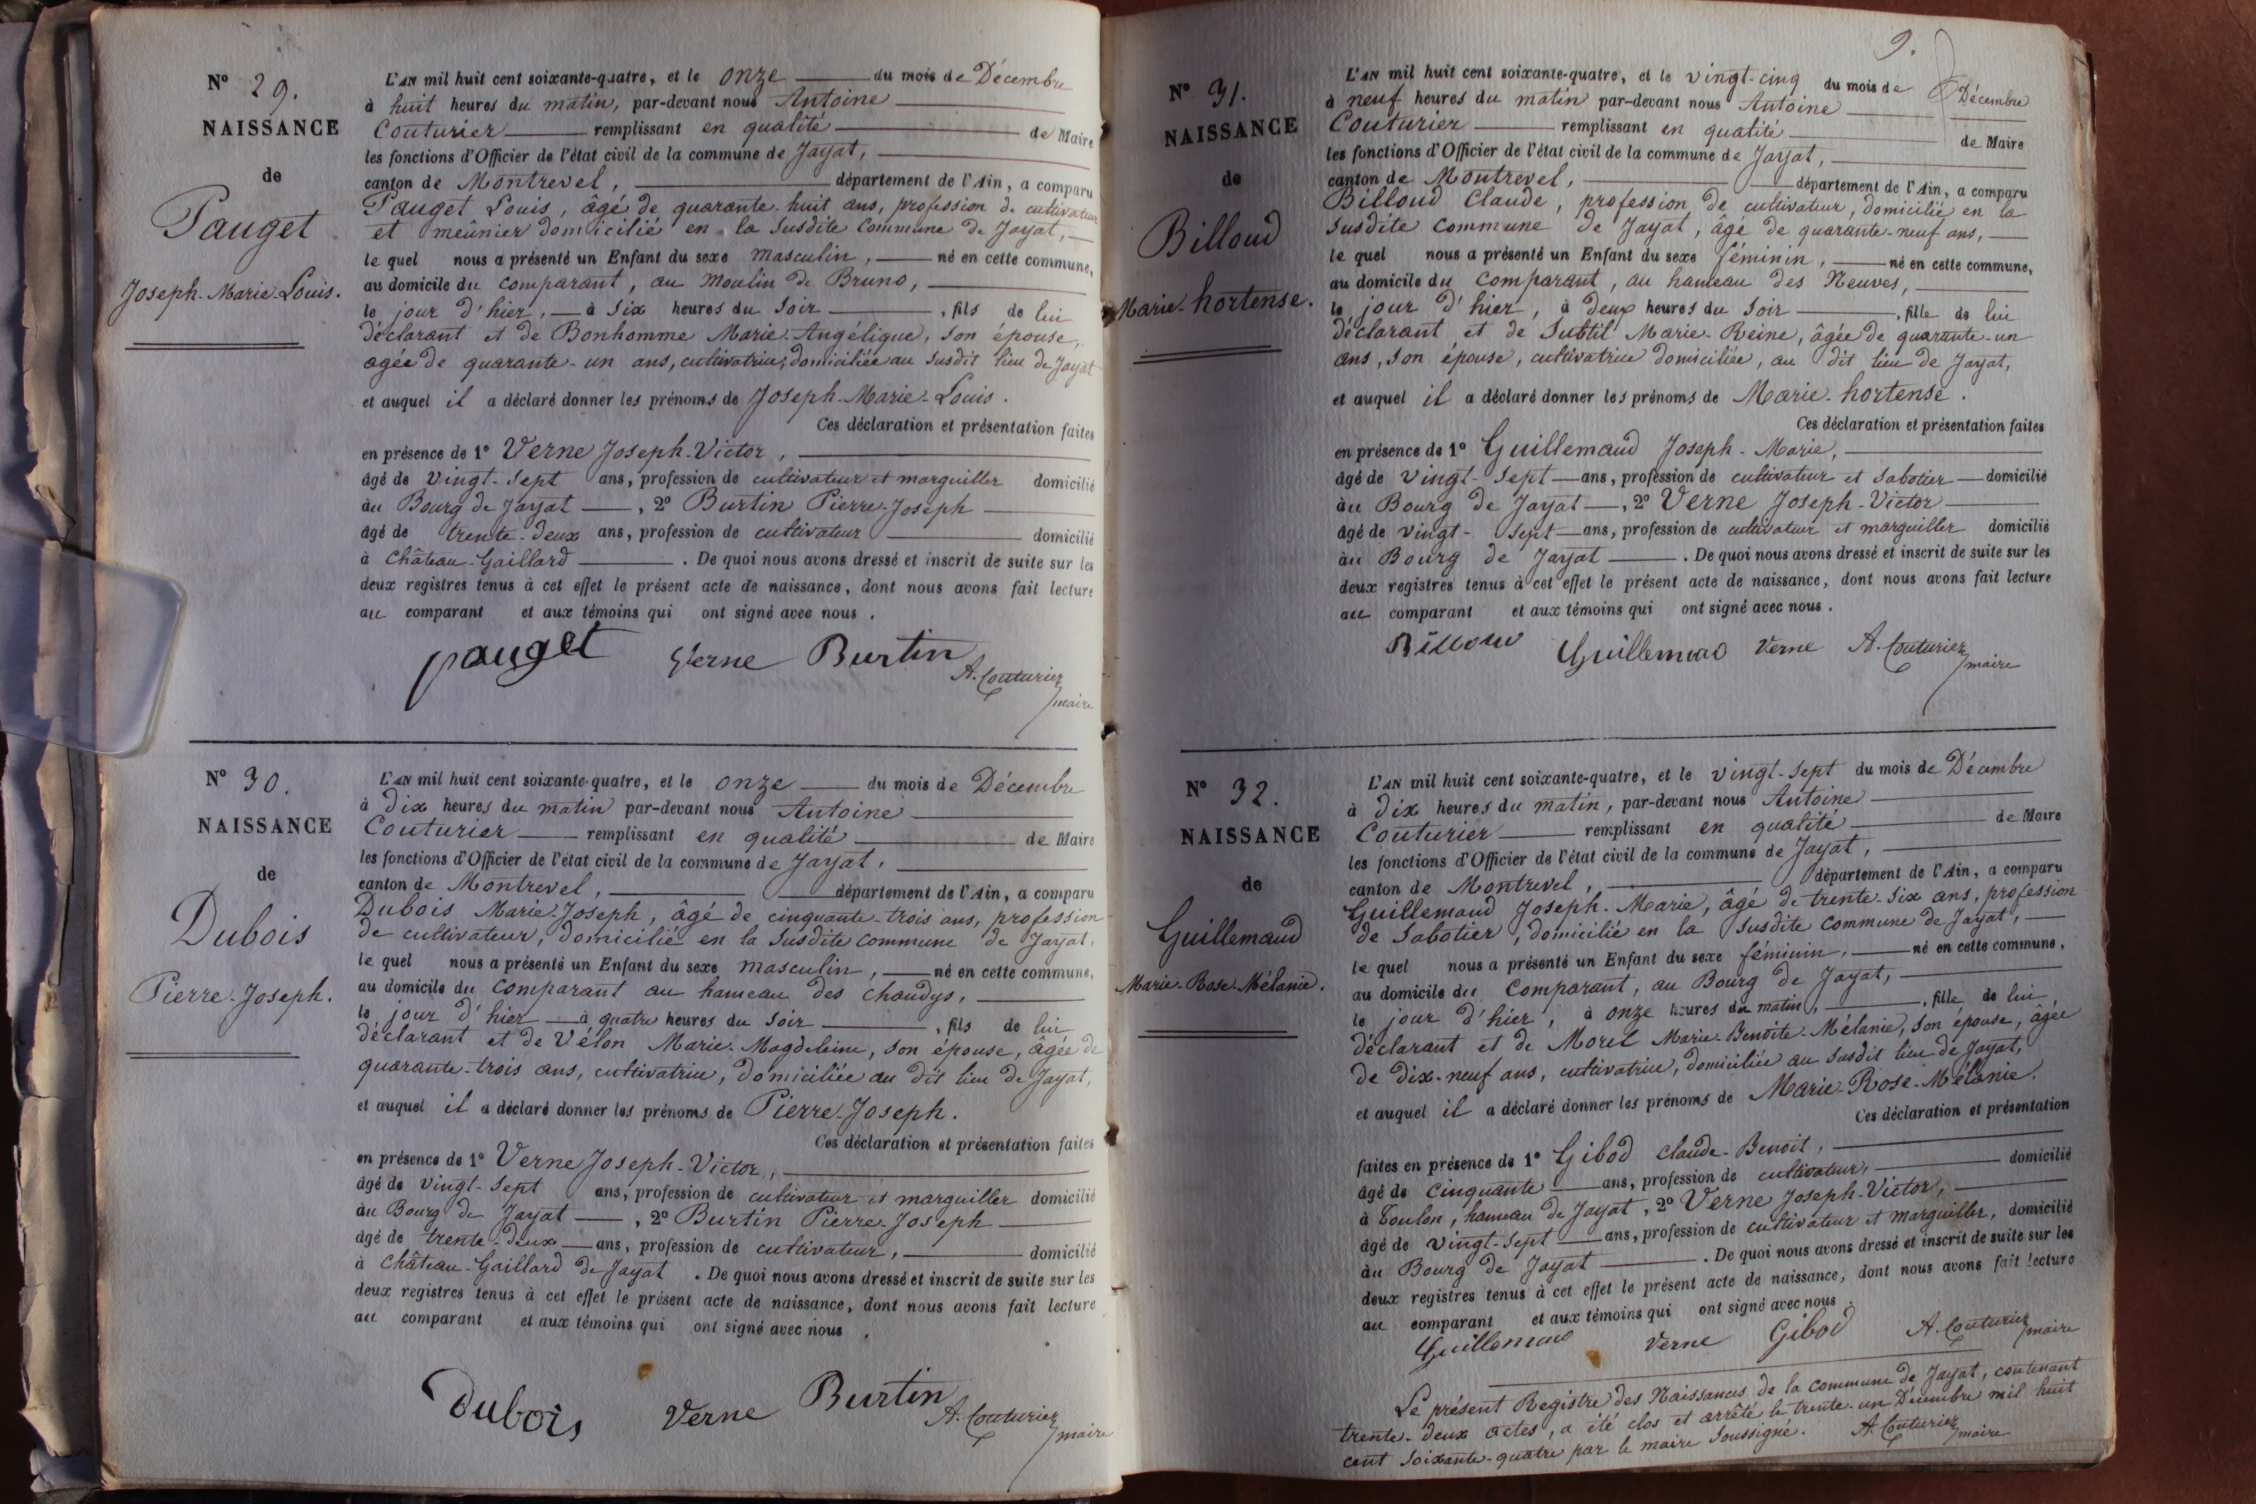 N° 29.
NAISSANCE
de
Pauget
Joseph-Marie-Louis.
L'AN mil huit cent soixante-quatre, et le onze du mois de Décembre
à huit heures du matin, par-devant nous Antoine
Couturier remplissant en qualité de Maire
les fonctions d'Officier de l'état civil de la commune de Jayat,
canton de Montrevel, département de l'Ain, a comparu
Pauget Louis, âgé de quarante-huit ans, profession de cultivateur
et meûnier domicilié en la susdite commune de Jayat,
le quel nous a présenté un Enfant du sexe masculin, né en cette commune,
au domicile du comparant, au Moulin de Bruno,
le jour d'hier, à six heures du soir, fils de lui
déclarant et de Bonhomme Marie-Angélique, son épouse,
agée de quarante-un ans, cultivatrice, domiciliée au susdit lieu de Jayat
et auquel il a déclaré donner les prénoms de Joseph-Marie-Louis.
Ces déclaration et présentation faites
en présence de 1° Verne Joseph-Victor,
âgé de vingt-sept ans, profession de cultivateur et marguiller domicilié
àu Bourg de Jayat, 2° Burtin Pierre-Joseph
âgé de trente-deux ans, profession de cultivateur domicilié
à Château-Gaillard. De quoi nous avons dressé et inscrit de suite sur les
deux registres tenus à cet effet le présent acte de naissance, dont nous avons fait lecture
au comparant et aux témoins qui ont signé avec nous.
pauget Verne Burtin A. Couturier
maire
N° 30.
NAISSANCE
de
Dubois
Pierre-Joseph.
L'AN mil huit cent soixante-quatre, et le onze du mois de Décembre
à dix heures du matin par-devant nous Antoine
Couturier remplissant en qualité de Maire
les fonctions d'Officier de l'état civil de la commune de Jayat,
canton de Montrevel, département de l'Ain, a comparu
Dubois Marie-Joseph, âgé de cinquante-trois ans, profession
de cultivateur, domicilié en la susdite commune de Jayat,
le quel nous a présenté un Enfant du sexe masculin, né en cette commune,
au domicile du comparant au hameau des chaudys,
le jour d'hier à quatre heures du soir, fils de lui
déclarant et de Vélon Marie-Magdeleine, son épouse, âgée de
quarante-trois ans, cultivatrice, domiciliée au dit lieu de Jayat,
et auquel il a déclaré donner les prénoms de Pierre-Joseph.
Ces déclaration et présentation faites
en présence de 1° Verne Joseph-Victor,
âgé de vingt-sept ans, profession de cultivateur et marguiller domicilié
àu Bourg de Jayat, 2° Burtin Pierre-Joseph
âgé de trente-deux ans, profession de cultivateur, domicilié
à Château-Gaillard de Jayat. De quoi nous avons dressé et inscrit de suite sur les
deux registres tenus à cet effet le présent acte de naissance, dont nous avons fait lecture
au comparant et aux témoins qui ont signé avec nous.
Dubois Verne Burtin A. Couturier
maire
9.
N° 31.
NAISSANCE
de
Billoud
Marie-hortense.
L'AN mil huit cent soixante-quatre, et le vingt-cinq du mois de Décembre
à neuf heures du matin par-devant nous Antoine
Couturier remplissant en qualité de Maire
les fonctions d'Officier de l'état civil de la commune de Jayat,
canton de Montrevel, département de l'Ain, a comparu
Billoud Claude, profession de cultivateur, domicilié en la
susdite commune de Jayat, âgé de quarante-neuf ans,
le quel nous a présenté un Enfant du sexe féminin, né en cette commune,
au domicile du comparant, au hameau des Neuves,
le jour d'hier, à deux heures du soir, fille de lui
déclarant et de Subtil Marie-Reine, âgée de quarante-un
ans, son épouse, cultivatrice domiciliée, au dit lieu de Jayat,
et auquel il a déclaré donner les prénoms de Marie-hortense.
Ces déclaration et présentation faites
en présence de 1° Guillemaud Joseph-Marie,
âgé de vingt-sept ans, profession de cultivateur et sabotier domicilié
àu Bourg de Jayat, 2° Verne Joseph-Victor
âgé de vingt-sept ans, profession de cultivateur et marguiller domicilié
àu Bourg de Jayat. De quoi nous avons dressé et inscrit de suite sur les
deux registres tenus à cet effet le présent acte de naissance, dont nous avons fait lecture
au comparant et aux témoins qui ont signé avec nous.
Billoud Guillemaud Verne A. Couturier
maire
N° 32.
NAISSANCE
de
Guillemaud
Marie-Rose-Mélanie.
L'AN mil huit cent soixante-quatre, et le vingt-sept du mois de Décembre
à dix heures du matin, par-devant nous Antoine
Couturier remplissant en qualité de Maire
les fonctions d'Officier de l'état civil de la commune de Jayat,
canton de Montrevel, département de l'Ain, a comparu
Guillemaud Joseph-Marie, âgé de trente-six ans, profession
de sabotier, domicilié en la susdite commune de Jayat,
le quel nous a présenté un Enfant du sexe féminin, né en cette commune,
au domicile du Comparant, au Bourg de Jayat,
le jour d'hier, à onze heures du matin, fille de lui,
déclarant et de Morel Marie-Benoite-Mélanie, son épouse, âgée
de dix-neuf ans, cultivatrice, domiciliée au susdit lieu de Jayat,
et auquel il a déclaré donner les prénoms de Marie-Rose-Mélanie.
Ces déclaration et présentation
faites en présence de 1° Gibod claude-Benoit,
âgé de cinquante ans, profession de cultivateur, domicilié
à Toulon, hameau de Jayat, 2° Verne Joseph-Victor,
âgé de vingt-sept ans, profession de cultivateur et marguiller, domicilié
àu Bourg de Jayat. De quoi nous avons dressé et inscrit de suite sur les
deux registres tenus à cet effet le présent acte de naissance, dont nous avons fait lecture
au comparant et aux témoins qui ont signé avec nous.
Guillemaud Verne Gibod A. Couturier
maire
Le présent Registre des Naissances de la commune de Jayat, contenant
trente-deux actes, a été clos et arrêté le trente-un Décembre mil huit
cent soixante-quatre par le maire soussigné. A. Couturier
maire